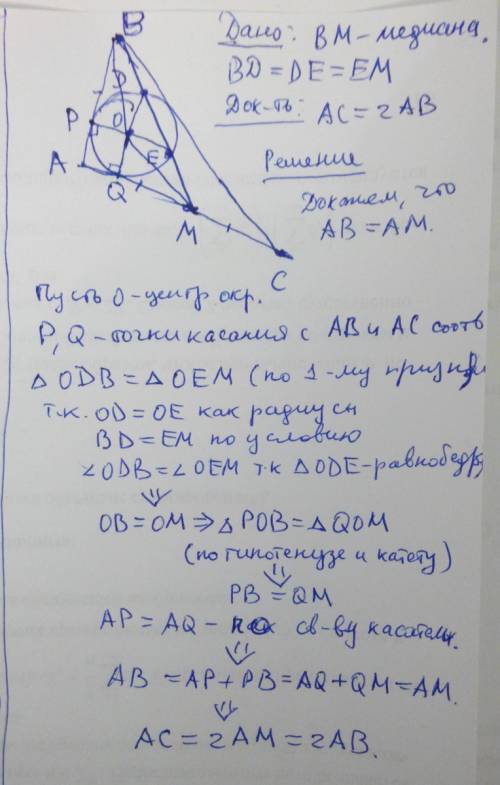 B
Дано: BM-медиана.
BD=DE=EM
Док-ть: AC=2AB
D
P
O
E
A
Q
M
C
Решение
Докажем, что
AB=AM.
Пусть O-центр окр.
P, Q-точки касания с AB и AC соотв
△ODB=△OEM (по 1-му
т.к. OD=OE как радиусы
BD=EM по условию
∠ODB=∠OEM т.к △ODE-равнобедр
⇓
OB=OM⇒△POB=△QOM
(по гипотенузе и катету)
⇓
PB=QM
AP=AQ - по св-ву касательн.
⇓
AB=AP+PB=AQ+QM=AM.
⇓
AC=2AM=2AB.